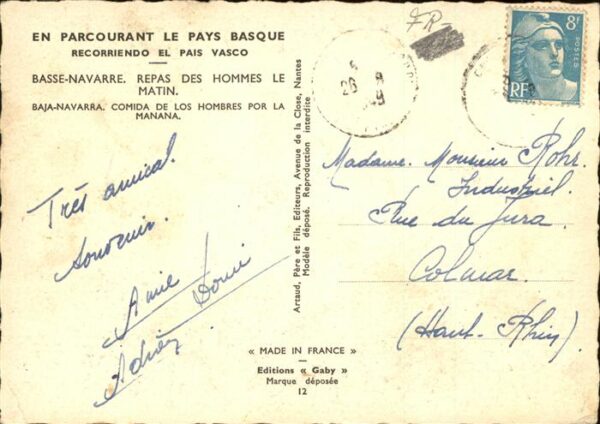 EN PARCOURANT LE PAYS BASQUE
RECORRIENDO EL PAIS VASCO
BASSE-NAVARRE. REPAS DES HOMMES LE
MATIN.
BAJA-NAVARRA. COMIDA DE LOS HOMBRES POR LA
MANANA.
Très amical
souvenir.
Artaud, Père et Fils, Editeurs, Avenue de la Close, Nantes
Modèle déposé. Reproduction interdite
« MADE IN FRANCE »
Editions « Gaby »
Marque déposée
12
FR-
8F
POSTES
RF
26
Madame. Monsieur Rohr.
Industriel.
Rue du Jura.
Colmar.
(Haut-Rhin)